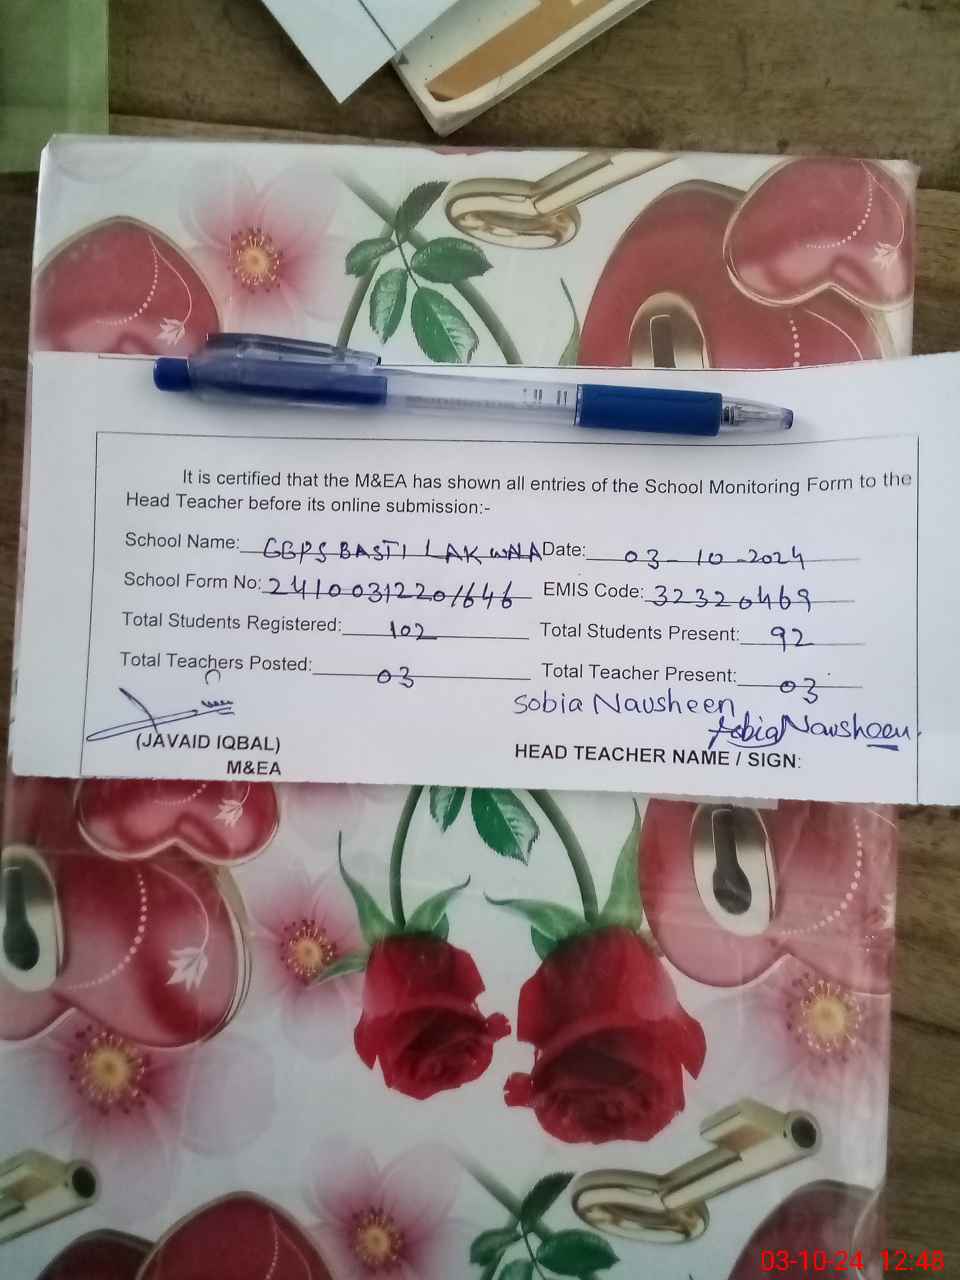 It is certified that the M&EA has shown all entries of the School Monitoring Form to the
Head Teacher before its online submission:-
School Name: GBPS BASTI LAKWALA Date: 03-10-2024
School Form No: 24100312201646 EMIS Code: 32320469
Total Students Registered: 102 Total Students Present: 92
Total Teachers Posted: 03 Total Teacher Present: 03
Sobia Nausheen
Sobia Nausheen
(JAVAID IQBAL)
M&EA
HEAD TEACHER NAME / SIGN:
03-10-24 12:48